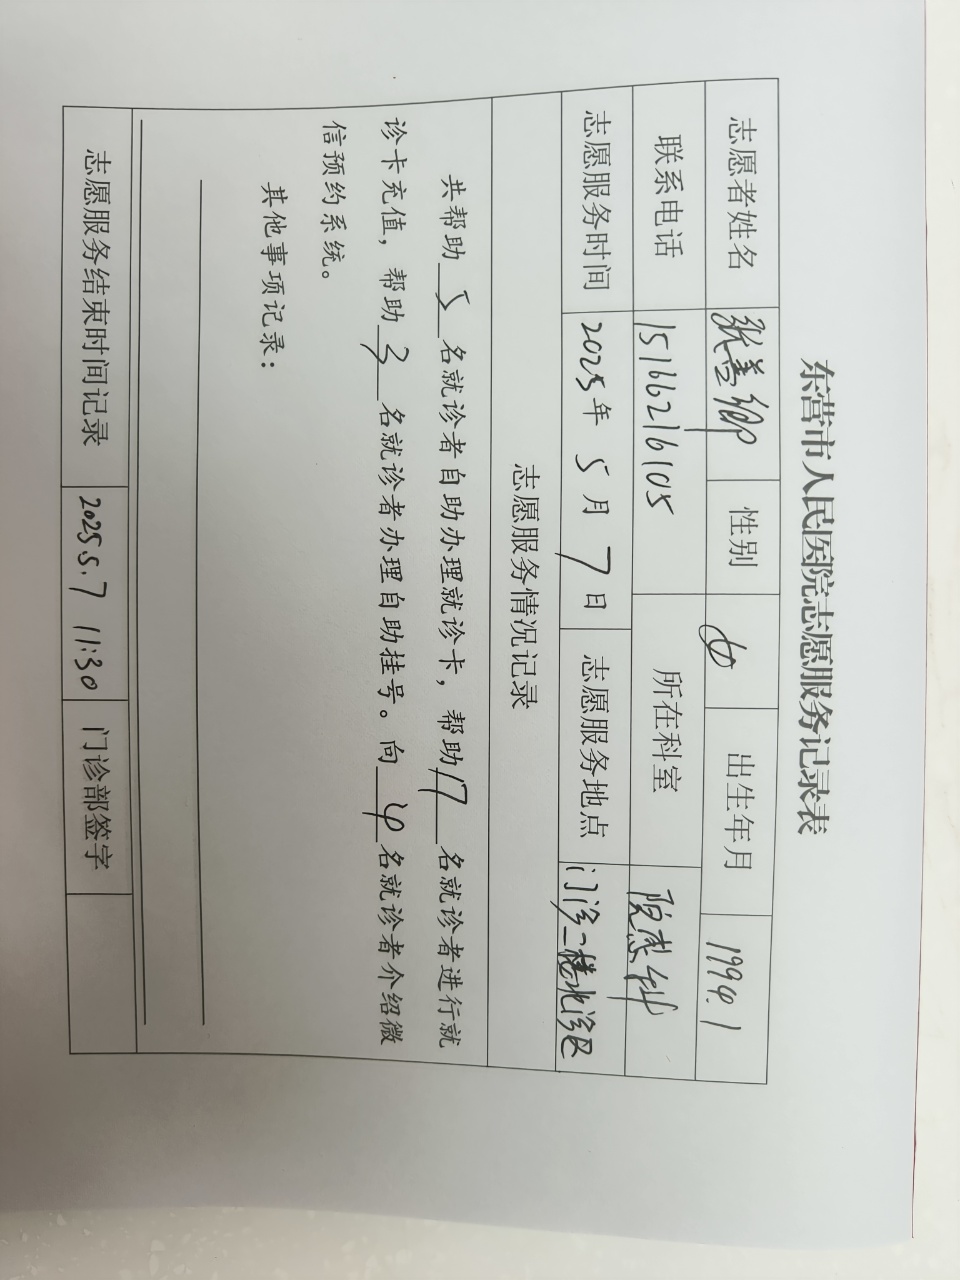 东营市人民医院志愿服务记录表
志愿者姓名 张善卿 性别 女 出生年月 1994.1
联系电话 15166216105 所在科室 院感科
志愿服务时间 2025年 5月 7日 志愿服务地点 门诊二楼北诊区
志愿服务情况记录
共帮助 5 名就诊者自助办理就诊卡，帮助 17 名就诊者进行就
诊卡充值，帮助 3 名就诊者办理自助挂号。向 4 名就诊者介绍微
信预约系统。
其他事项记录：
志愿服务结束时间记录 2025.5.7 11:30 门诊部签字